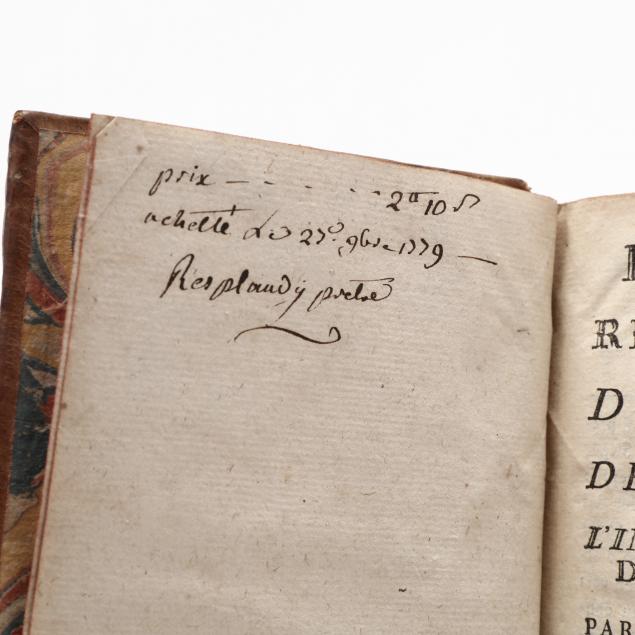 prix - - - - - 2tt 10 s
achetté Le 27e 9bre 1779 —
Resplandÿ prêtre
RE
D
DE
L'IN
D
PAR